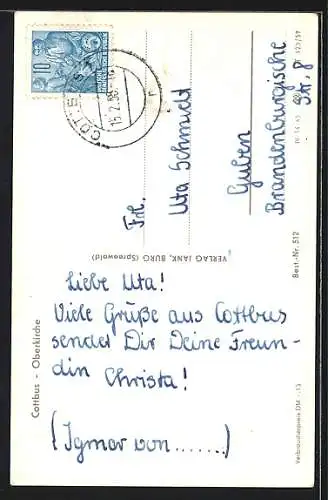 Cottbus - Oberkirche
Liebe Uta!
Viele Grüße aus Cottbus
sendet Dir Deine Freun-
din Christa!
(Igmar von........)
VERLAG JANK, BURG (Spreewald)
Frl.
Uta Schmidt
Guben
Brandenburgische
Str. 8
10
COTTBUS
15.2.58
Best.-Nr. 512
Verbraucherpreis DM -.15